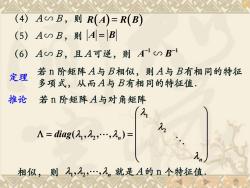 (4) A∽B，则 R(A)=R(B)
(5) A∽B，则 |A|=|B|
(6) A∽B，且A可逆，则 A⁻¹∽B⁻¹
定理 若 n 阶矩阵A与B相似，则A与B有相同的特征
多项式，从而A与B有相同的特征值．
推论 若 n 阶矩阵A与对角矩阵
Λ = diag(λ₁,λ₂,⋯,λₙ) = (λ₁ λ₂ ⋱ λₙ)
相似， 则 λ₁,λ₂,⋯,λₙ 就是A的 n 个特征值．